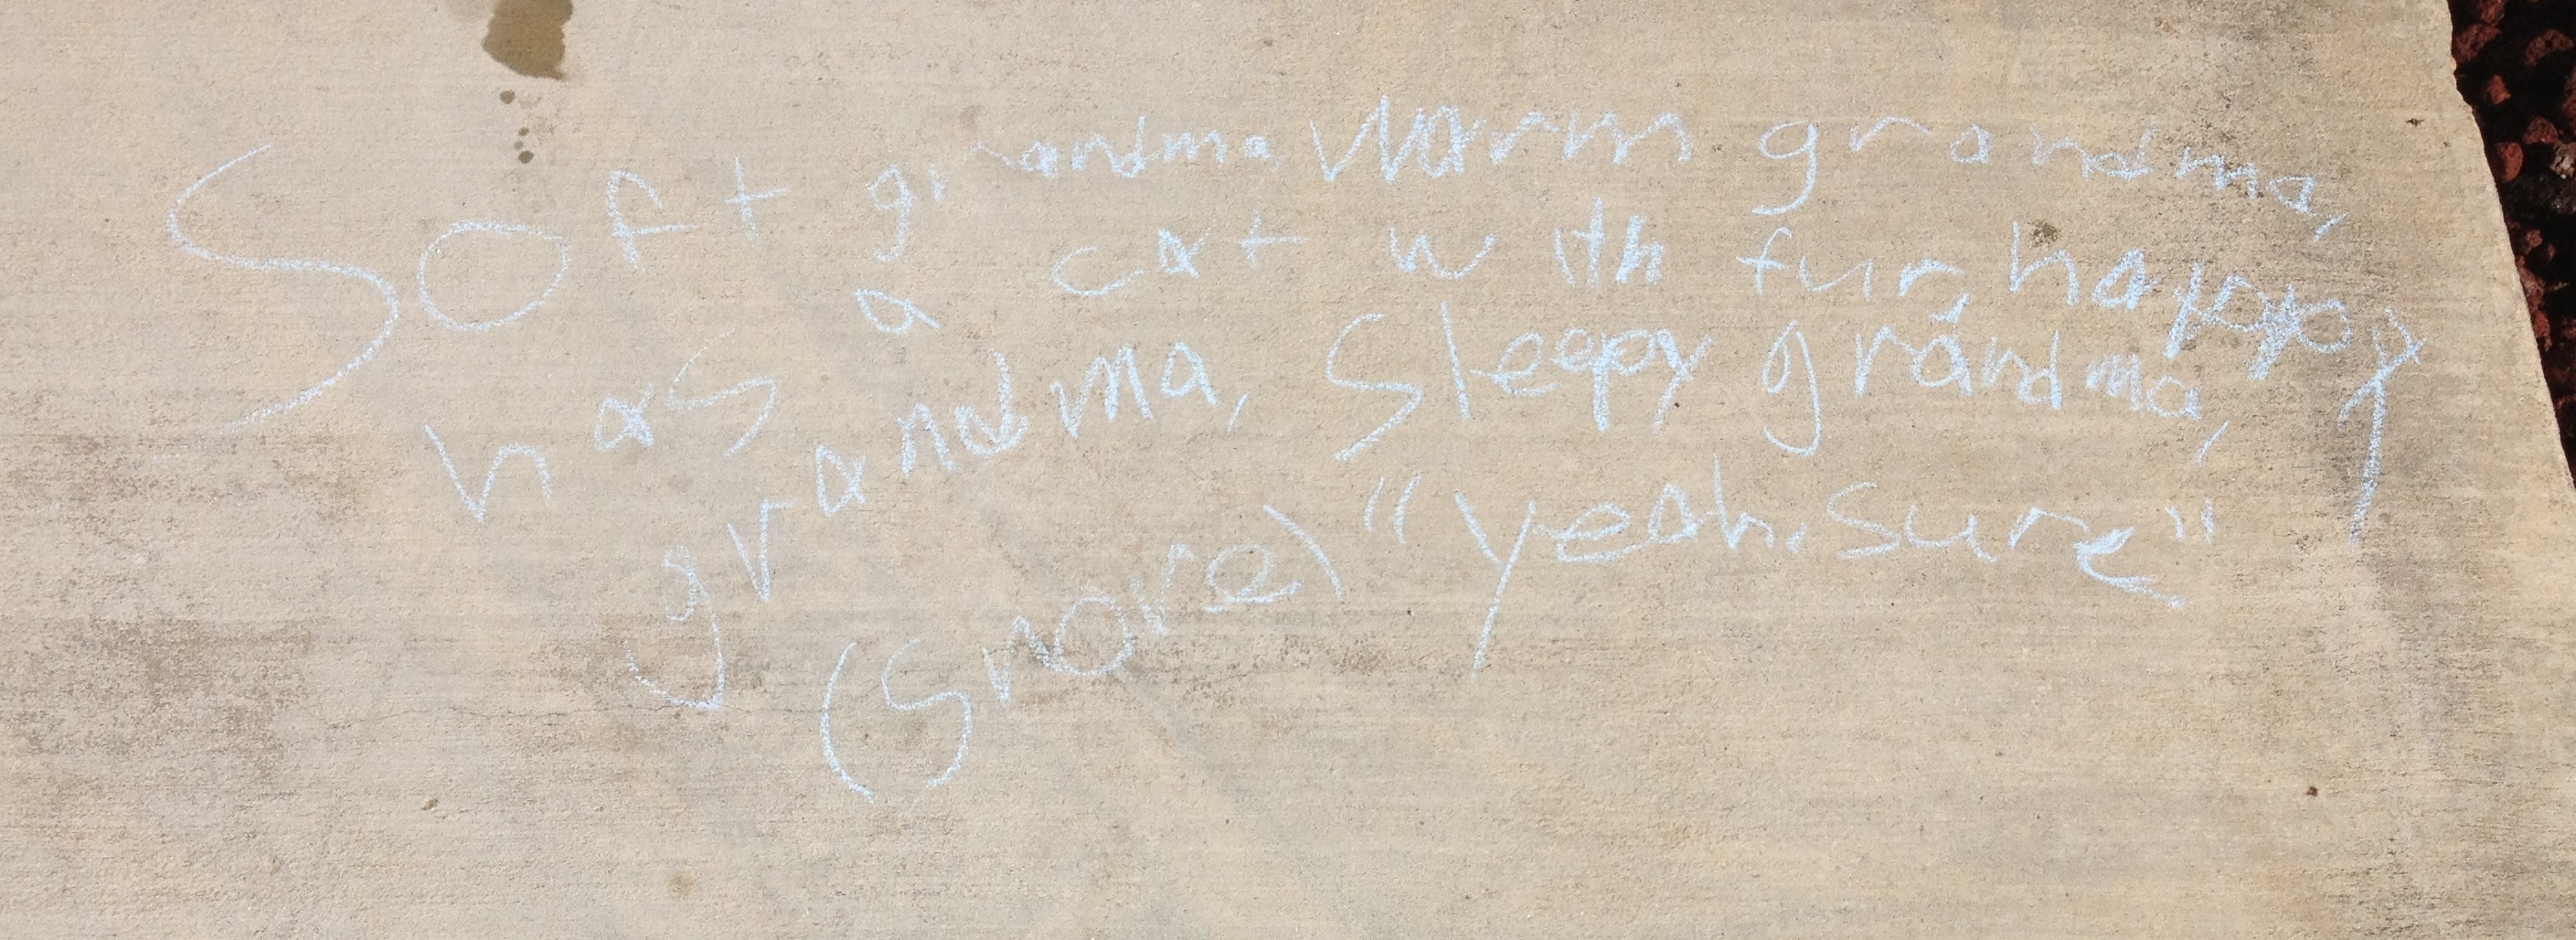 Soft grandma warm grandma,
has a cat with fur, happy
grandma, Sleepy grandma,
(Snore) "yeah, sure"